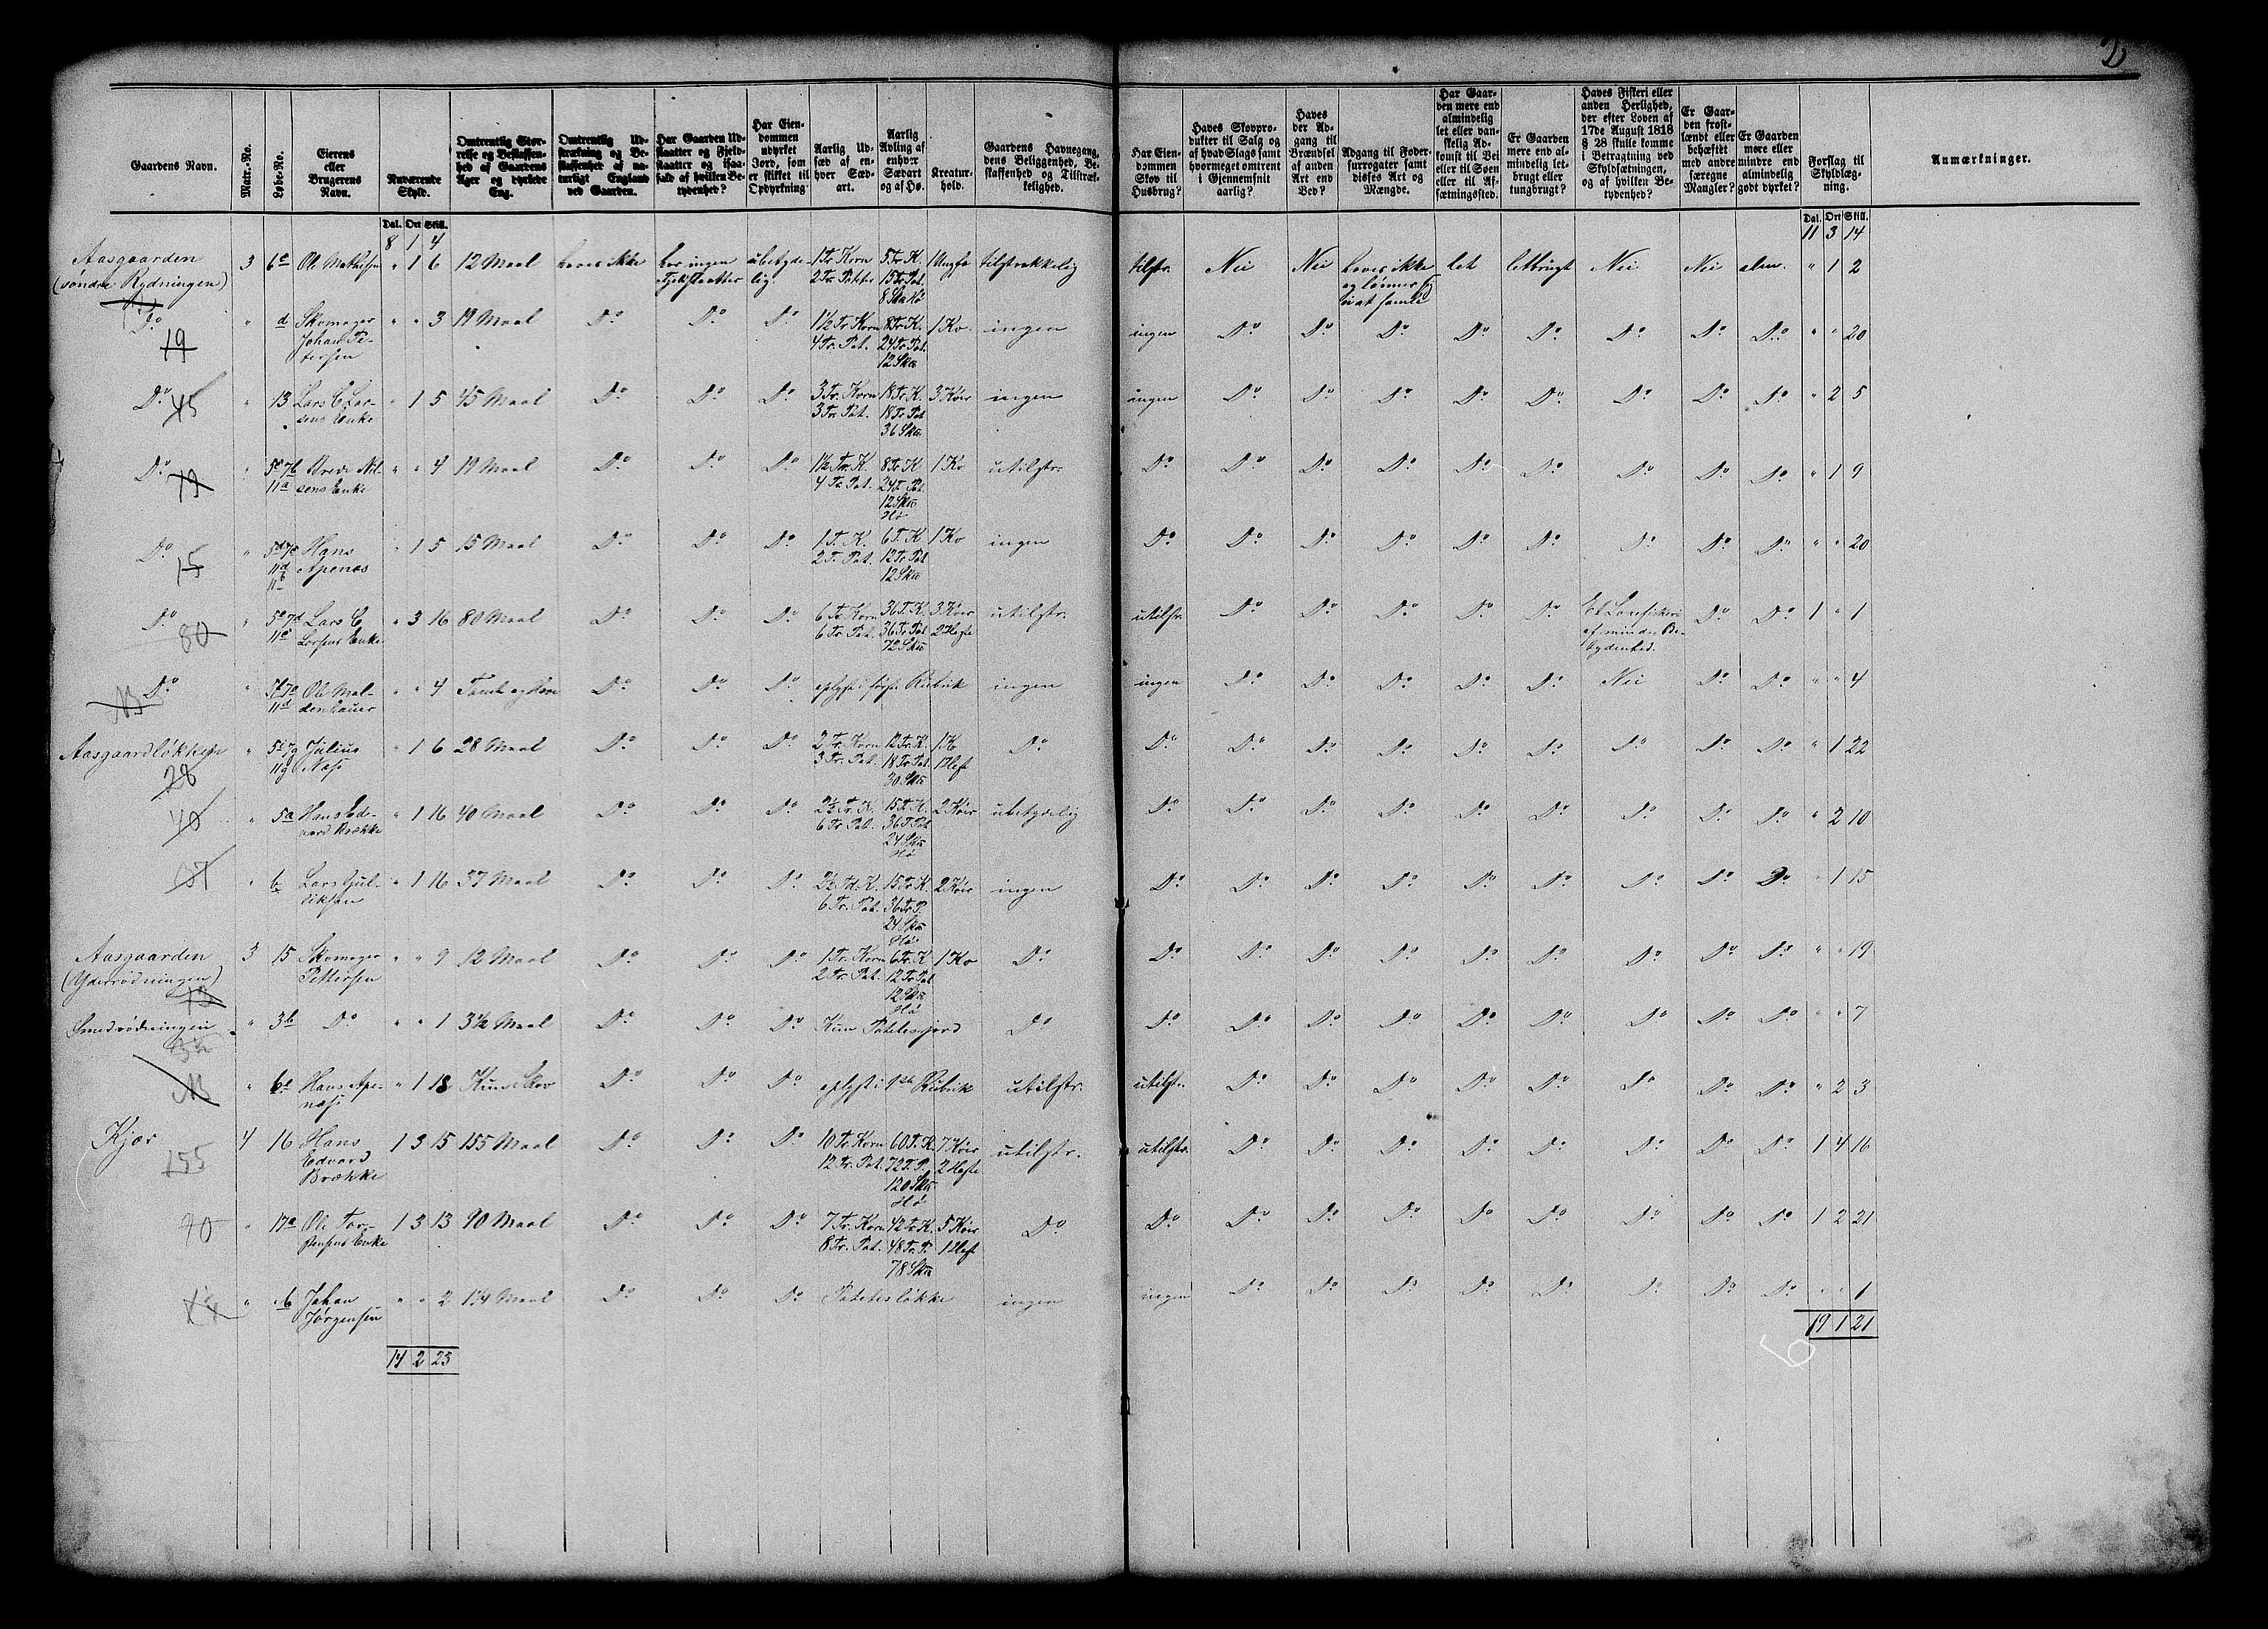 2
Gaardens Navn.
Matr.-No.
Løbe-No.
Eierens eller Brugerens Navn.
Nuværende Skyld.
Omtrentlig Størrelse og Beskaffenhed af Gaardens Ager og dyrkede Eng.
Omtrentlig Udstrækning og Beskaffenhed af naturligt England ved Gaarden.
Har Gaarden Udslaatter og Fjeldslaatter og isaafald af hvilken Betydenhed?
Har Eiendommen udyrket Jord, som er skikket til Opdyrkning
Aarlig Udsæd af enhver Sædart.
Aarlig Avling af enhver Sædart og af Hø.
Kreaturhold.
Gaardens Havnegang, dens Beliggenhed, Beskaffenhed og Tilstrækkelighed.
Har Eiendommen Skov til Husbrug?
Haves Skovprodukter til Salg og af hvad Slags samt hvormeget omtrent i Gjennemsnit aarlig?
Haves der Adgang til Brændsel af anden Art end Ved?
Adgang til Foderfurrogater samt disses Art og Mængde.
Har Gaarden mere end almindelig let eller vanskelig Adkomst til Bei eller til Søen eller til Afsætningssted.
Er Gaarden mere end almindelig letbrugt eller tungbrugt?
Haves Fiskeri eller anden Herlighed, der efter Loven af 17de August 1818 § 28 skulle komme i Betragtning ved Skyldsætningen, og af hvilken Betydenhed?
Er Gaarden frostlændt eller behæftet med andre særegne Mangler?
Er Gaarden mere eller mindre end almindelig godt dyrket?
Forslag til Skyldlægning.
Anmærkninger.
Dal. Ort Skill.
Dal. Ort Skill.
8 1 4
11 3 14
Aasgaarden (søndre Rydningen) 3 6c Ole Mathisen " 1 6 12 Maal haves ikke har ingen Fjeldslaatter ubetydelig. 1 Tr. Korn 2 Tr. Poteter 5 Tr. K. 15 Tr. Pot. 8 Ska Hø 1 Ungfæ tilstrækkelig tilstr. Nei Nei haves ikke og lønner sig ei at samle let letbrugt Nei Nei alm. " 1 2
Do 19 " d Skomager Johan Petersen " " 3 19 Maal Do Do Do 1½ Tr Korn 4 Tr. Pot. 8 Tr. K. 24 Tr. Pot. 12 Ska 1 Ko. ingen ingen Do Do Do Do Do Do Do Do " " 20
Do 45 " 13 Lars C. Larsens Enke " 1 5 45 Maal Do Do Do 3 Tr. Korn 3 Tr. Pot. 18 Tr. K. 18 Tr. Pot 36 Ska 3 Køer ingen ingen Do Do Do Do Do Do Do Do " 2 5
Do 19 " 5c 7b 11a Brede Nilsens Enke " " 4 19 Maal Do Do Do 1½ Tr. K. 4 Tr. Pot. 8 Tr K. 24 T. Pot 12 Ska Hø 1 Ko utilstr. Do Do Do Do Do Do Do Do Do " 1 9
Do 15 " 5d 7c 11d 11b Hans Apenæs " 1 5 15 Maal Do Do Do 1 T. K. 2 T. Pot. 6 T. K 12 Tr. Pot 12 Ska 1 Ko ingen Do Do Do Do Do Do Do Do Do " " 20
Do 80 " 5e 7d 11c Lars C. Larsens Enke " 3 16 80 Maal Do Do Do 6 Tr. Korn 6 Tr. Pot. 36 T. K. 36 Tr Pot 72 Ska 3 Køer 2 Heste utilstr. utilstr. Do Do Do Do Do Et Laxefiskeri af mindre Betydenhed. Do Do 1 " 1
Do " 5f 7e 11d Ole Maldenhauer " " 4 Do Do Do oplyst i første Rubrik ingen ingen Do Do Do Do Do Nei Do Do " " 4
Aasgaardløkken 28 " 5i 7g 11g Julius Næss " 1 6 28 Maal Do Do Do 2 Tr. Korn 3 Tr. Pot. 12 Tr. K. 18 Tr. Pot. 30 Ska 1 K 1 Hest Do Do Do Do Do Do Do Do Do Do " 1 22
40 " 5a Hans Edvard Brække " 1 16 40 Maal Do Do Do 2½ Tr. K. 6 Tr Pot. 15 T. K. 36 T. Pot 24 Ska Hø 2 Køer ubetydelig Do Do Do Do Do Do Do Do Do " 2 10
37 " Lars Gulliksen " 1 16 37 Maal Do Do Do 2½ Td. K. 6 Tr. Pot. 15 Tr. K. 36 Tr. P. 24 Ska Hø 2 Køer ingen Do Do Do Do Do Do Do Do Do " 1 15
Aasgaarden (Yderrødningen) 12 3 15 Skomager Pettersen " " 9 12 Maal Do Do Do 1 Tr. Korn 2 Tr. Pot. 6 Tr. K. 12 Tr Pot 12 Ska Hø 1 Ko Do Do Do Do Do Do Do Do Do Do " " 19
Smedrødningen 3½ " 3b Do " " 1 3½ Maal Do Do Do Kun Potetesjord Do Do Do Do Do Do Do Do Do Do " " 7
" 6e Hans Apenæs " 1 18 Kun Skov Do Do Do oplyst i 1ste Rubrik utilstr. utilstr. Do Do Do Do Do Do Do Do " 2 3
Kjær 155 4 16 Hans Edvard Brække 1 3 15 155 Maal Do Do Do 10 Tr. Korn 12 Tr. Pot. 60 T. K. 72 T. P. 120 Ska Hø 7 Køer 2 Heste utilstr. utilstr. Do Do Do Do Do Do Do Do 1 4 16
90 " 17a Ole Torstensens Enke 1 3 13 90 Maal Do Do Do 7 Tr. Korn 8 Tr. Pot. 42 Tr. K. 48 Tr. P. 78 Ska 5 Køer 1 Hest Do Do Do Do Do Do Do Do Do Do 1 2 21
" b Johan Jørgensen " " 2 1¼ Maal Do Do Do Potetesløkke ingen ingen Do Do Do Do Do Do Do Do " " 1
19 1 21
14 2 23
6